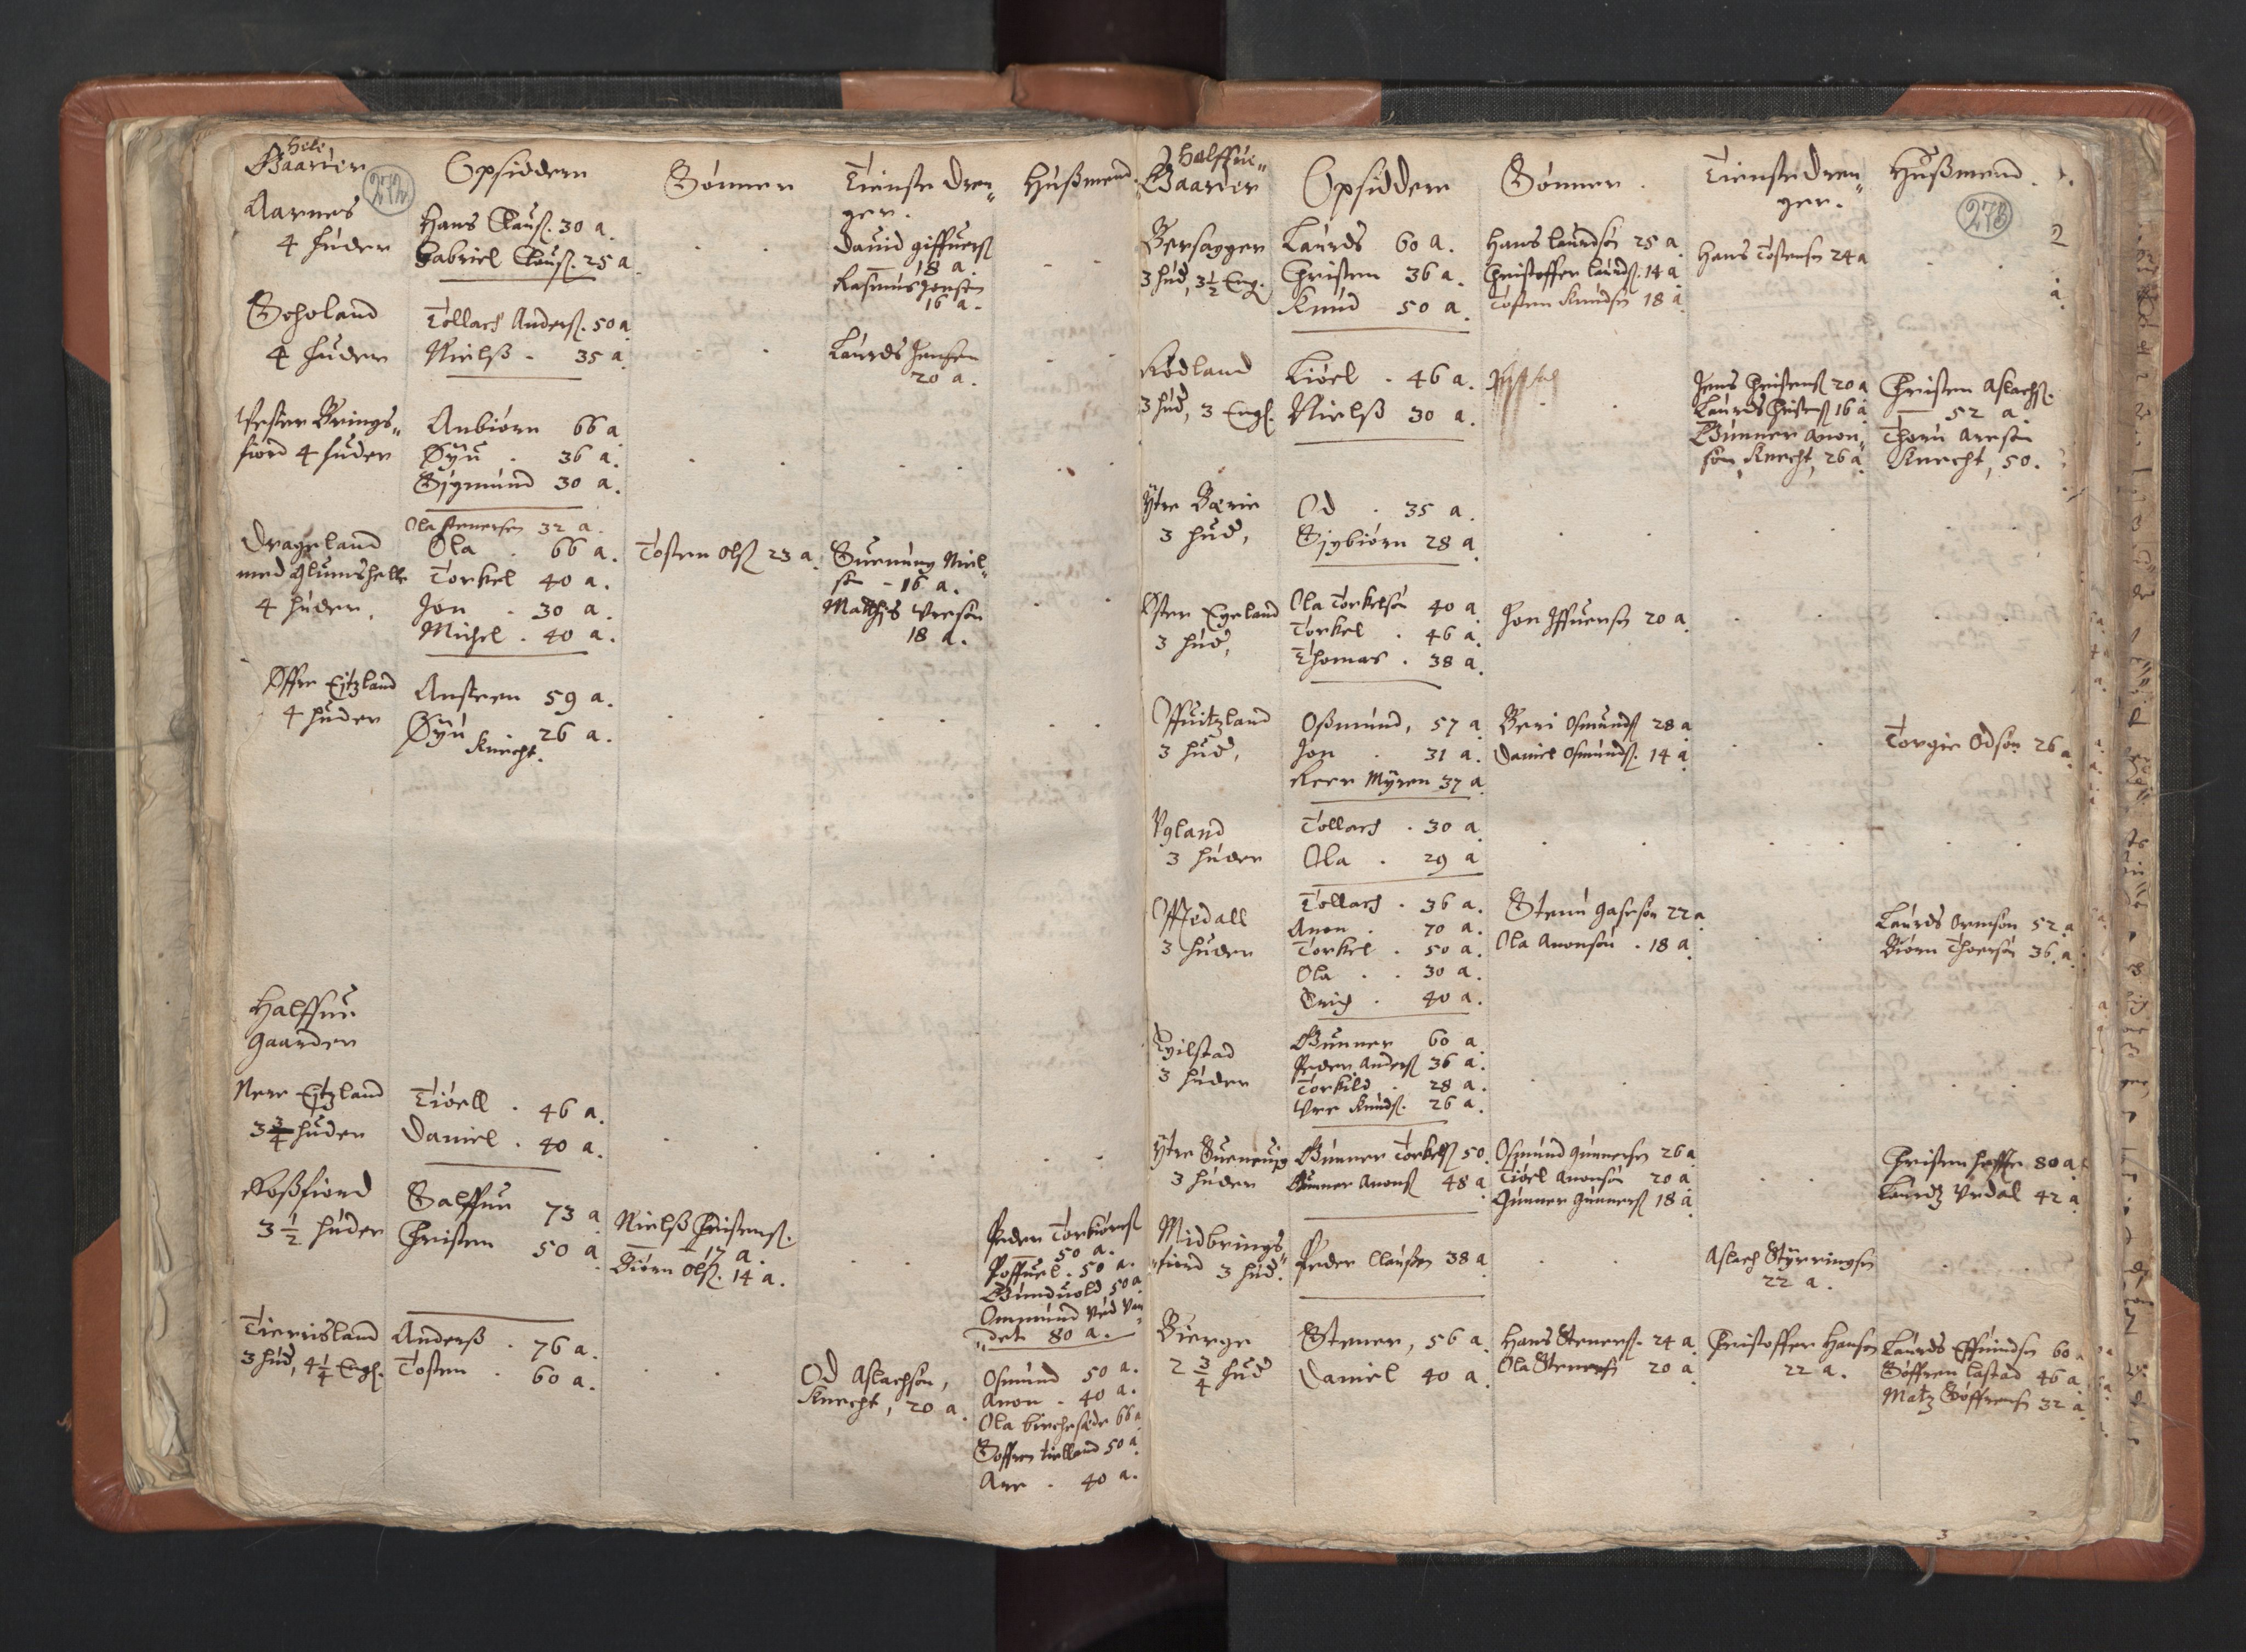 Hele
Gaarder
272
Opsiddere
Sønner
Tieniste Dren„
ger.
Hußmend.
Aarnes
4 huder
Hans Clauß. 30 a.
Gabriel Clauß. 25 a.
Dauid giffuerß
18 a.
Rasmus Jensen
16 a.
Goholand
4 huder
Tollach Anderß. 50 a
Nielß - 35 a.
Laurds Jensen
20 a.
Vester Brings„
fiord 4 huder
Anbiørn 66 a
Øyu . 36 a.
Sigmund 30 a.
Ola stenersen 32 a.
Drageland
med glumshelle
4 huder.
Ola . 66 a.
Torkel 40 a.
Jon . 30 a.
Michel . 40 a.
Tosten Olß 23 a.
Suenung Niel„
sen - 16 a.
Matthis Vresøn
18 a.
Øffre Eitzland
4 huder
Ansteen 59 a.
Øyu . 26 a.
Knecht.
Halffue
gaarder
Nere Eitzland
3 3/4 huder
Tiøell . 46 a.
Daniel . 40 a.
Roßfiord
3 1/2 huder
Salffue 73 a
Christen 50 a
Nielß Christenß.
17 a.
Biørn Olß. 14 a.
Peder Torkiørß
50 a.
Poffuel . 50 a.
Gunduold 50 a
Ommund Ved Van„
„det 80 a.
Tierrisland
3 hud, 4 1/4 Engl.
Anderß . 76 a.
Tosten . 60 a.
Od Aslachsøn,
Knecht, 20 a.
Osmund 50 a.
Anon - 40 a.
Ola birchesede 66 a
Søffren tielland 50 a
Are . 40 a.
Halffue„
Gaarder
Opsiddere
Sønner.
Tieniste Dren„
ger.
Hußmend.
273
Bersagger
3 hud, 3 1/2 Eng.
Laurds 60 a.
Christen 36 a.
Knud 50 a.
Hans laurdsøn 25 a
Christoffer laurdß. 14 a
Tosten Knudsøn 18 a
Hans Tostensen 24 a
Rødland
3 hud, 3 Engl.
Kiøel . 46 a.
Nielß 30 a.
Jens Christenß 20 a
Laurds Christenß 16 a
Gunner Anon„
søn, Knecht, 26 a.
Christen Aslachß.
52 a
Thoru Aresøn
Knecht, 50.
Ytre Berie
3 hud,
Od . 35 a.
Sigbiørn 28 a
Øster Egeland
3 hud,
Ola Torkelsøn 40 a
Torkel . 46 a
Thomas . 38 a.
Jon Iffuersøn 20 a.
Offuitzland
3 hud,
Oßmund, 57 a
Jon . 31 a.
Reer Myren 37 a.
Beri Osmundß 28 a
Daniel Osmundß. 14 a.
Torgie Odsøn 26 a
Vgland
3 huder
Tollach . 30 a.
Ola . 29 a
Offedall
3 huder
Tollach . 36 a.
Anon . 70 a.
Torkel . 50 a.
Ola . . 30 a.
Erich . 40 a.
Stenu gasesøn 22 a
Ola Anonsøn . 18 a
Laurds Ormsøn 52 a
Biørn Thoersøn 36. a
Egilstad
3 huder
Gunner 60 a
Peder Anderß 36 a.
Torkild . 28 a.
Vre Knudß. 26 a.
Ytre Sueneuig
3 huder
Gunner Torkelß 50.
Gunner Anonß 48 a
Osmund gunnersen 26 a
Tiøel Anonsøn 20 a
Gunner gunnerß 18 a
Christen haffe 80 a
Laurdz Vrdal 42 a
Midbrings„
„fiord 3 hud.
Peder Claußen 38 a
Aslach Styrringsøn
22 a.
Bierge
2 3/4 hud
Stener, 56 a.
Daniel 40 a.
Hans Stenerß. 24 a.
Ola Stenersen 20 a
Christoffer Hansen
22 a.
Laurds Effuindsøn 60 a
Søffren lastad 46 a
Matz Søffrensøn 32 a